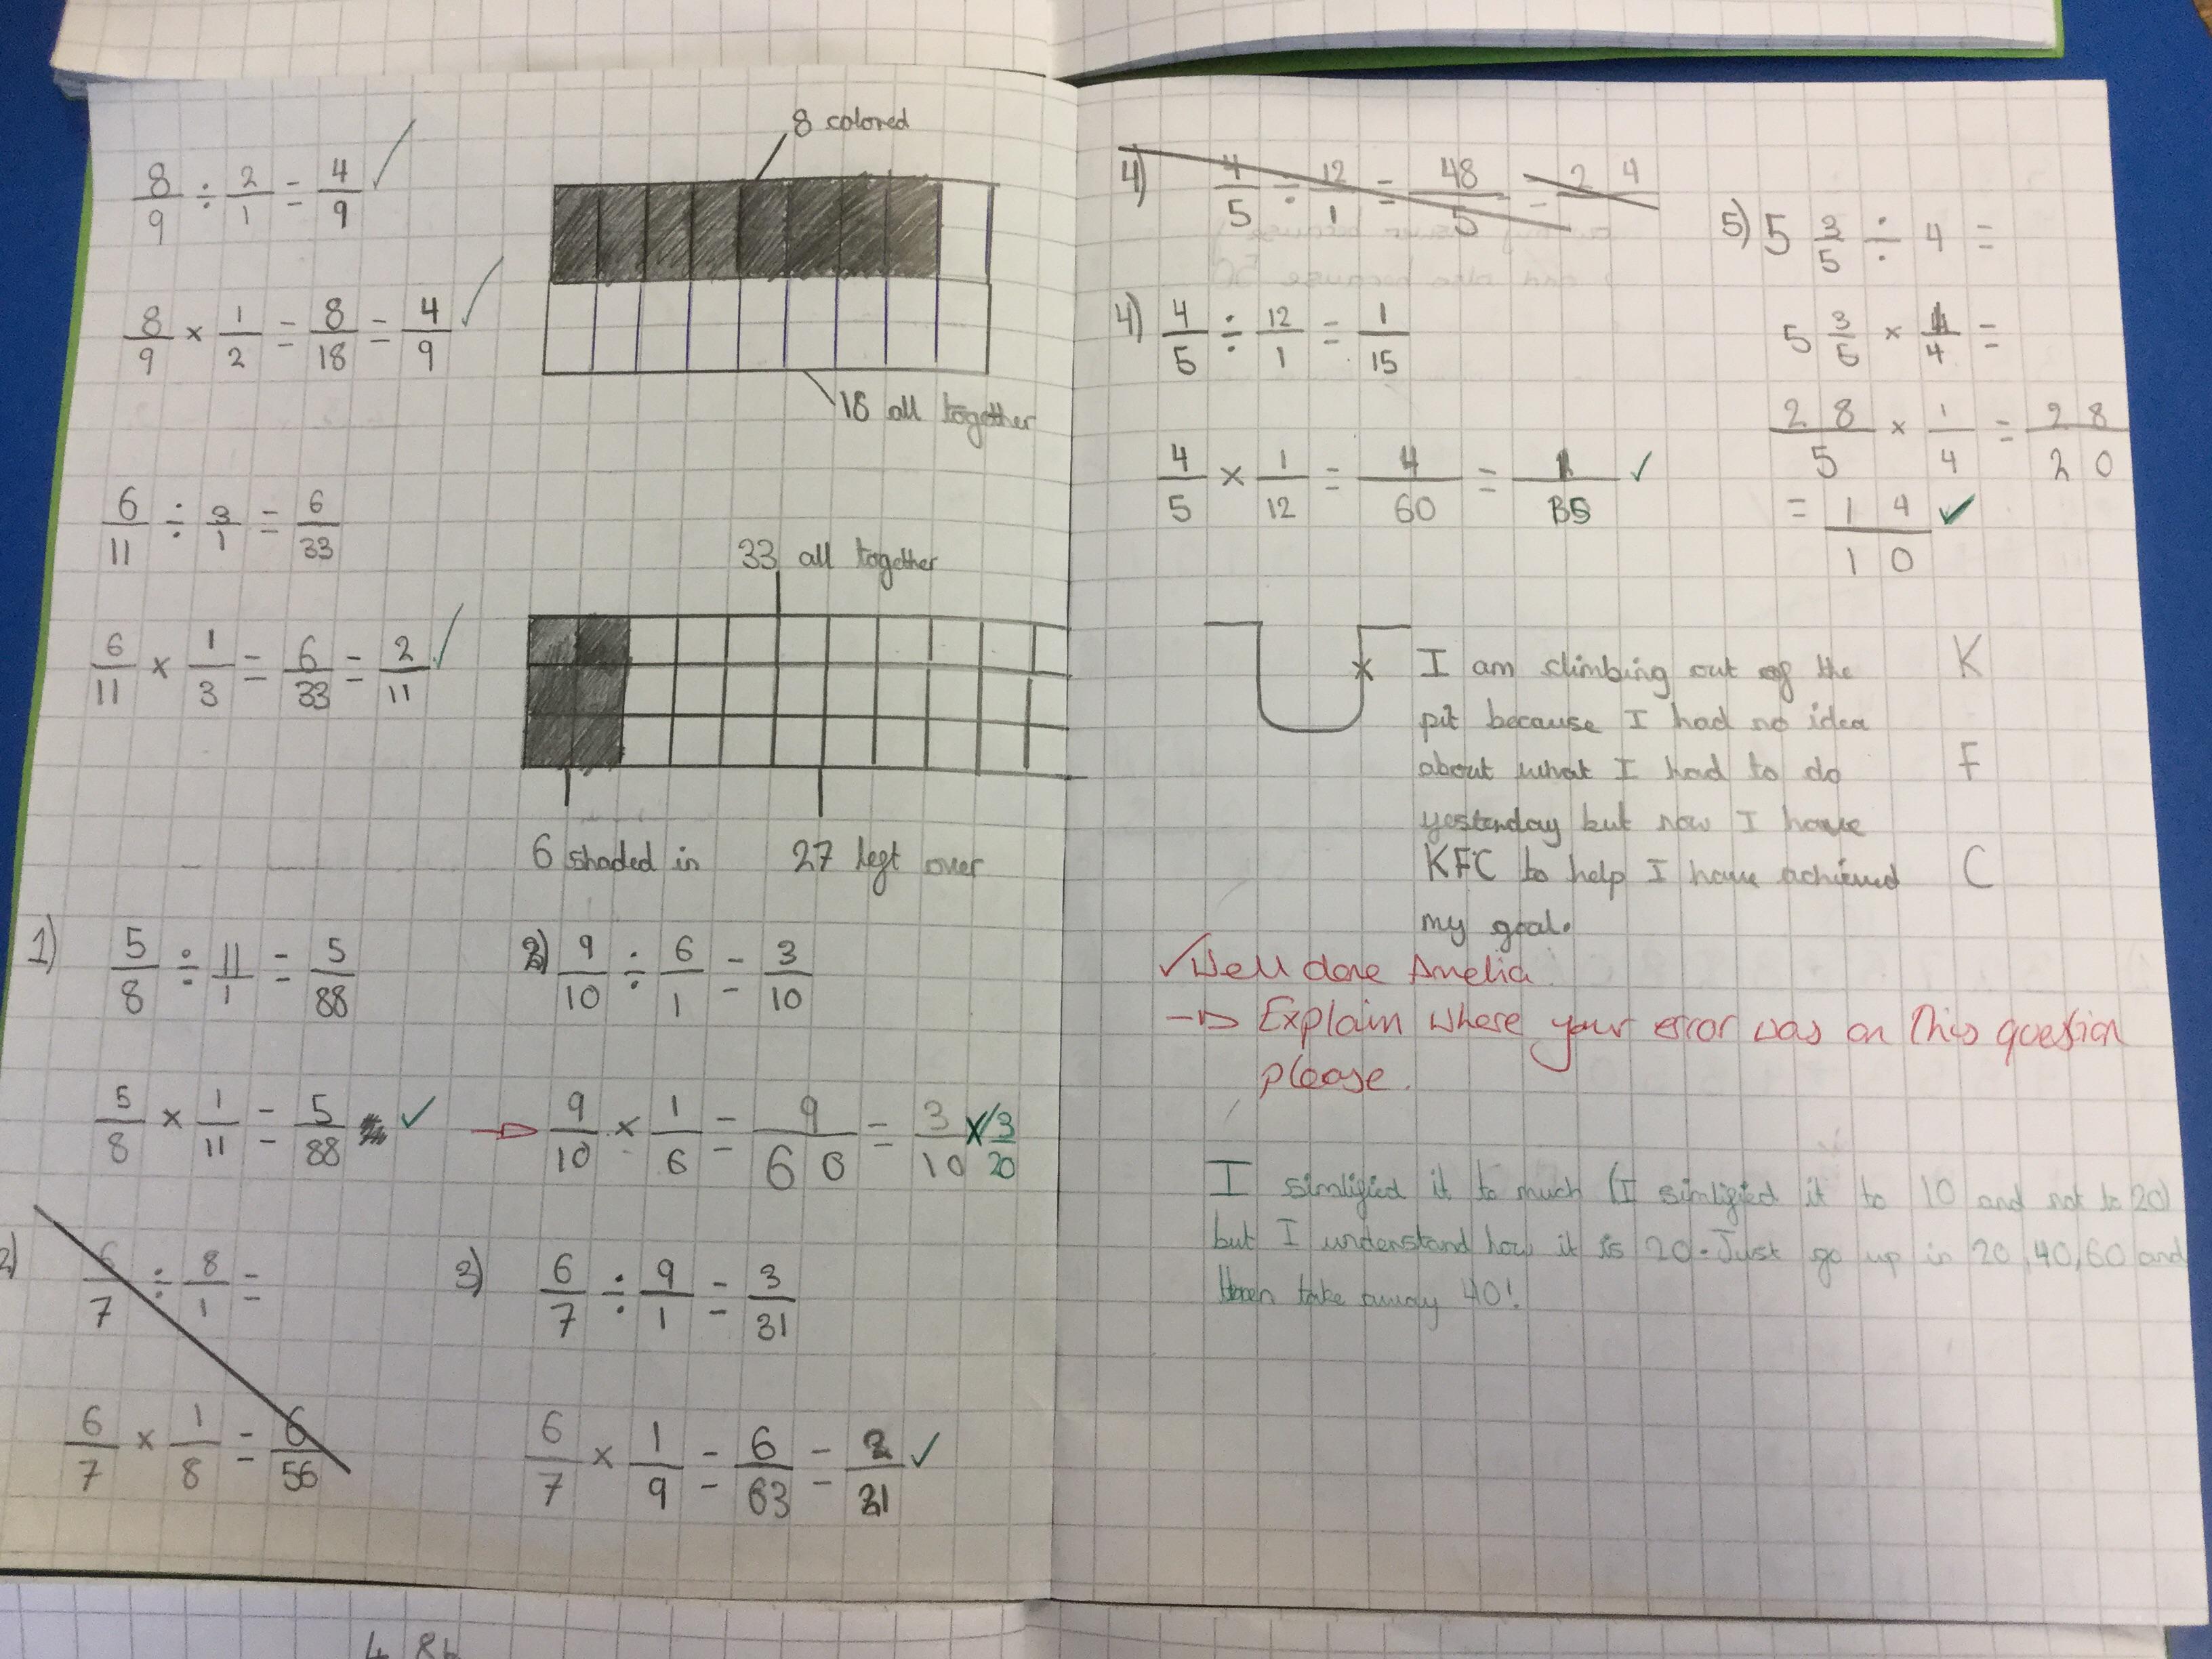 8/9 ÷ 2/1 = 4/9 ✓
8/9 × 1/2 = 8/18 = 4/9 ✓
8 colored
18 all together
6/11 ÷ 3/1 = 6/33
6/11 × 1/3 = 6/33 = 2/11 ✓
33 all together
6 shaded in
27 left over
1) 5/8 ÷ 11/1 = 5/88
5/8 × 1/11 = 5/88 ✓
2) 9/10 ÷ 6/1 = 3/10
→ 9/10 × 1/6 = 9/60 = 3/10 × 3/20
2) 6/7 ÷ 8/1 =
6/7 × 1/8 = 6/56
3) 6/7 ÷ 9/1 = 3/31
6/7 × 1/9 = 6/63 = 2/21 ✓
4) 4/5 ÷ 12/1 = 48/5 = 24
4) 4/5 ÷ 12/1 = 1/15
4/5 × 1/12 = 4/60 = 1/15 ✓
5) 5 3/5 ÷ 4 =
5 3/5 × 1/4 =
28/5 × 1/4 = 28/20
= 14/10 ✓
x I am climbing out of the
pit because I had no idea
about what I had to do
yesterday but now I have
KFC to help I have achieved
my goal.
K
F
C
✓ Well done Amelia
→ Explain where your error was on this question
please.
I simlified it to much (I simlified it to 10 and not to 20)
but I understand how it is 20. Just go up in 20,40,60 and
then take away 40!